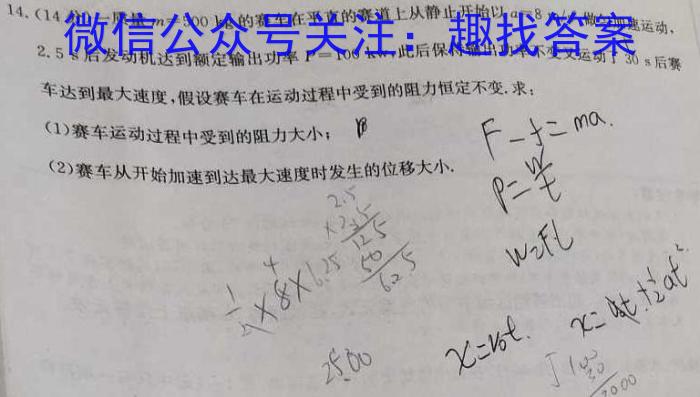 14.(14分)一质量 m=500 kg的赛车在平直的赛道上从静止开始以 a=8 m/s 做匀加速运动,
微信公众号关注：趣找答案
2.5 s后发动机达到额定输出功率 P=100 kW,此后保持输出功率不变又运动了30 s后赛
车达到最大速度,假设赛车在运动过程中受到的阻力恒定不变.求:
(1)赛车运动过程中受到的阻力大小;
(2)赛车从开始加速到达最大速度时发生的位移大小.
F-f=ma.
P=W/t
W=FL
2.5
×2.5
125
50
625
1/2×8×6.25
4
2500
x=v₀t.
x=v₀t+½at²